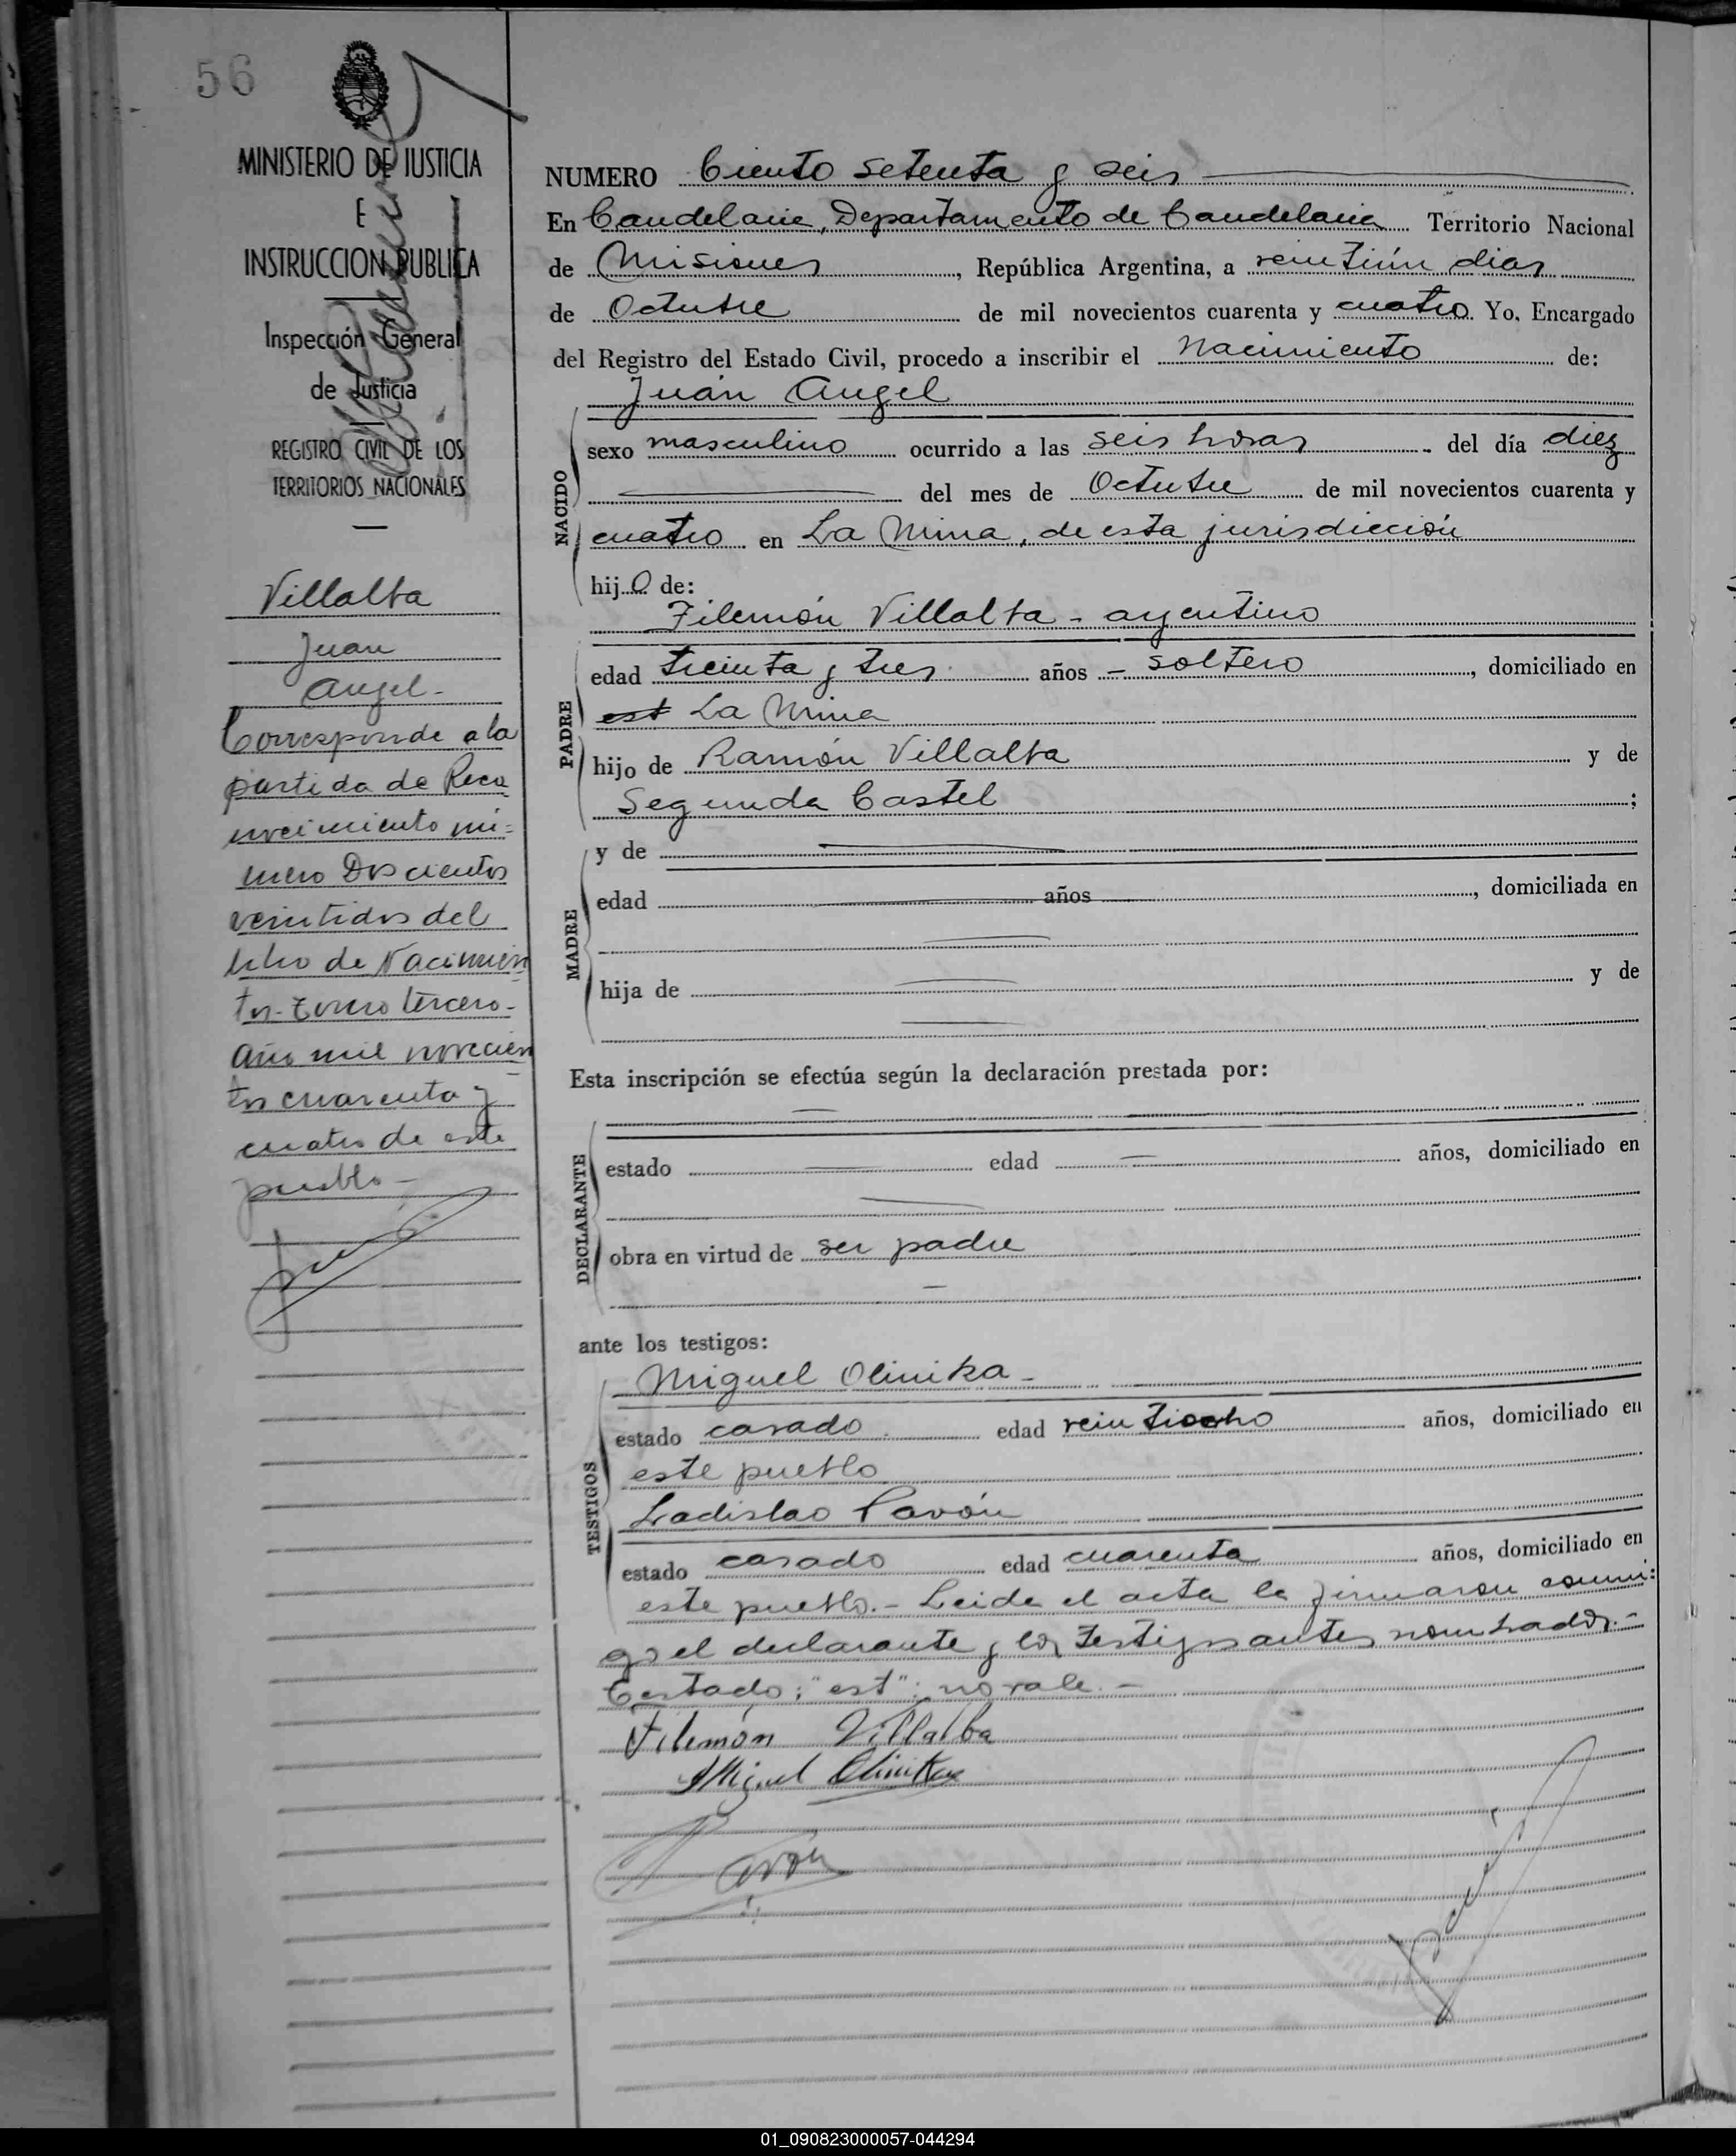 56
MINISTERIO DE JUSTICIA
E
INSTRUCCION PUBLICA
Inspección General
de Justicia
REGISTRO CIVIL DE LOS
TERRITORIOS NACIONALES
Villalba
Juan
Angel.-
Corresponde a la
partida de Reco
nocimiento nú=
mero Doscientos
veintidos del
libro de Nacimien
tos-tomo tercero-
Año mil novecien
tos cuarenta y
cuatro de este
pueblo-
NUMERO Ciento setenta y seis
En Candelaria, Departamento de Candelaria Territorio Nacional
de Misiones, República Argentina, a veintiún dias
de Octubre de mil novecientos cuarenta y cuatro Yo, Encargado
del Registro del Estado Civil, procedo a inscribir el Nacimiento de:
Juán Angel
NACIDO
sexo masculino ocurrido a las seis horas del día diez
del mes de Octubre de mil novecientos cuarenta y
cuatro en La Mina, de esta jurisdicción
hijo de:
Filemón Villalba - argentino
PADRE
edad treinta y tres años - soltero, domiciliado en
est La Mina
hijo de Ramón Villalba y de
Segunda Castel;
MADRE
y de
edad años, domiciliada en
hija de y de
Esta inscripción se efectúa según la declaración prestada por:
DECLARANTE
estado edad años, domiciliado en
obra en virtud de ser padre
ante los testigos:
TESTIGOS
Miguel Olinika-
estado casado edad veintiocho años, domiciliado en
este pueblo
Ladislao Pavón
estado casado edad cuarenta años, domiciliado en
este pueblo.- Leida el acta la firmaron conmi:
go el declarante y los testigos antes nombrados.-
Testado: "est": no vale.-
Filemón Villalba
Miguel Olinika
Pavón
01_090823000057-044294